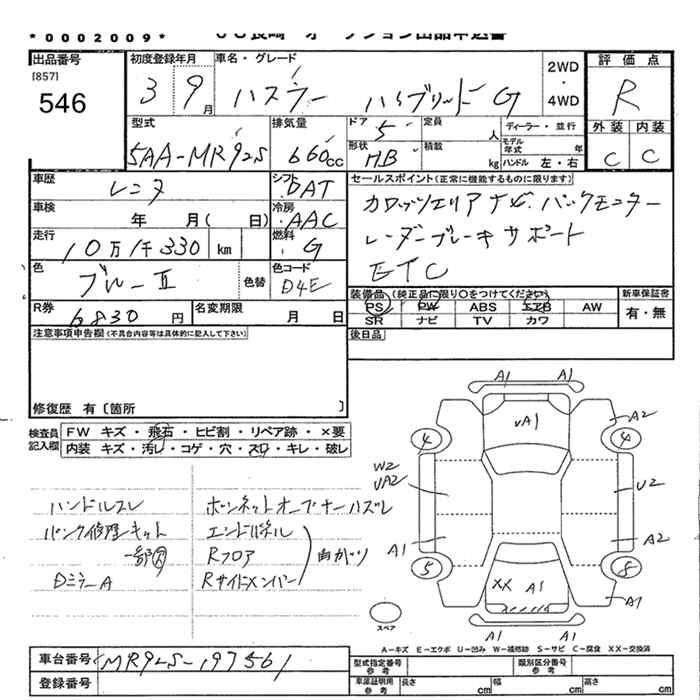 *0002009*
出品番号
[857]
546
初度登録年月 車名・グレード
3 9月 ハスラー ハイブリッド G
2WD
・
4WD
評価点
R
外装 内装
C C
型式 排気量 ドア 5 定員 人
5AA-MR92S 660cc 形状 HB 積載 kg
ディーラー・並行
モデル年式 年
ハンドル 左・右
車歴 レンタ シフト DAT
車検 年 月( 日) 冷房 AAC
走行 10万1千330 km 燃料 G
色 ブルーII 色替 色コード D4E
R券 6830円 名変期限 月 日
セールスポイント(正常に機能するものに限ります)
カロッツエリアナビ. バックモニター
レーダーブレーキサポート
ETC
装備品(純正品に限り○をつけてください) 新車保証書
PS PW ABS エアB AW 有・無
SR ナビ TV カワ
後日品
注意事項申告欄(不具合内容等は具体的に記入して下さい)
修復歴 有〔箇所 〕
検査員記入欄
FW キズ・飛石・ヒビ割・リペア跡・×要
内装 キズ・汚レ・コゲ・穴・スレ・キレ・破レ
ハンドルスレ ボンネットオープナーハズレ
パンク修理キット エンドパネル
一部欠 Rフロア 曲がり
DミラーA Rサイドメンバー
A1 A1
UA1
A2
4 4
W2
UA2
U2
A1 A2
5 8
XX A1
A1
A1 A1
スペア
A-キズ E-エクボ U-凹み W-補修跡 S-サビ C-腐食 XX-交換済
車台番号 MR92S-197561
登録番号
型式指定番号 参考 類別区分番号 参考
車庫証明用 参考 長さ cm 幅 cm 高さ cm